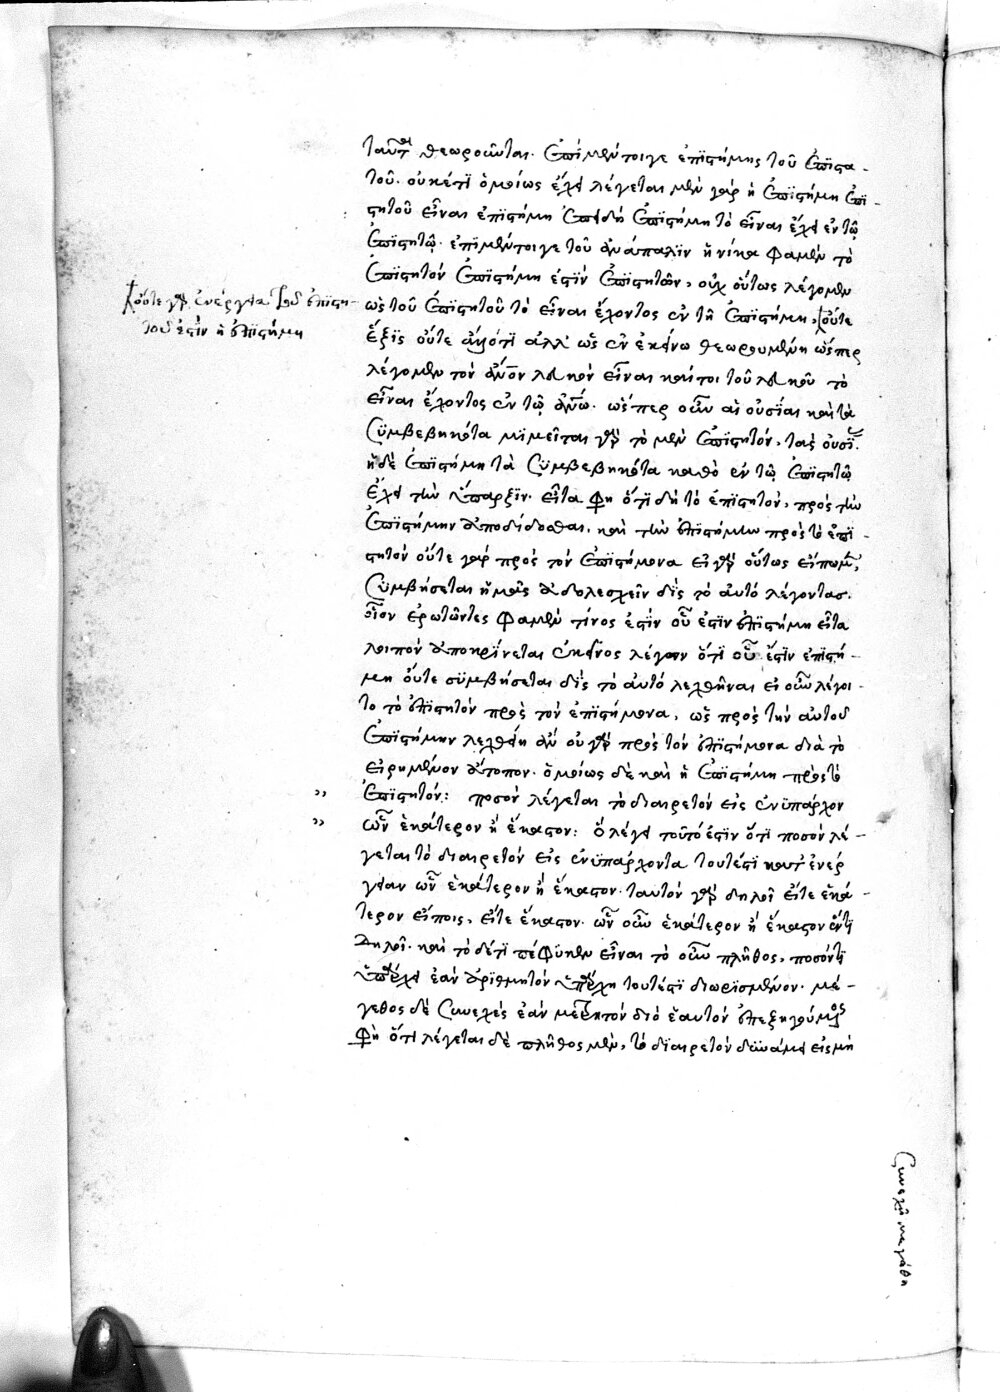 ταύτῃ θεωροῦνται. ἐπὶ μέντοιγε ἐπιστήμης τοῦ ἐπιστη-
τοῦ. οὐκέτι ὁμοίως ἔχει λέγεται μὲν γὰρ ἡ ἐπιστήμη ἐπι-
στητοῦ εἶναι ἐπιστήμη ἐπειδὴ ἐπιστήμη τὸ εἶναι ἔχει ἐν τῷ
ἐπιστητῷ. ἐπὶ μέντοιγε τοῦ ἀνάπαλιν ἡνίκα φαμὲν τὸ
ἐπιστητὸν ἐπιστήμη ἐστὶν ἐπιστητὸν, οὐχ οὕτως λέγομεν
ὡς τοῦ ἐπιστητοῦ τὸ εἶναι ἔχοντος ἐν τῇ ἐπιστήμῃ, οὔτε
οὔτε γὰρ ἐνέργεια τοῦ ἐπιστη-
τοῦ ἐστὶν ἡ ἐπιστήμη
ἕξις οὔτε ἀλλ' ὡς ἐν ἐκείνω θεωρουμένη ὥσπερ
λέγομεν τὸν ἄνον λευκὸν εἶναι καίτοι τοῦ λευκοῦ τὸ
εἶναι ἔχοντος ἐν τῷ ἀνω. ὥσπερ οὖν αἱ οὐσίαι καὶ τὰ
συμβεβηκότα μιμεῖται γὰρ τὸ μὲν ἐπιστητὸν, τὰς οὐσί.
ἡ δὲ ἐπιστήμη τὰ συμβεβηκότα καθὸ ἐν τῷ ἐπιστητῷ
ἔχει τὴν ὕπαρξιν. εἶτα φη ὅτι δὴ τὸ ἐπιστητὸν, πρὸς τὴν
ἐπιστήμην ἀποδίδοσθαι, καὶ τὴν ἐπιστήμην πρὸς τὸ ἐπι-
στητὸν οὔτε γὰρ πρὸς τὸν ἐπιστήμονα εἰ γὰρ οὕτως εἴπωμεν,
συμβήσεται ἡμᾶς ἀδολεσχεῖν δὶς τὸ αὐτὸ λέγοντας.
οἷον ἐρωτῶντες φαμὲν τίνος ἐστὶν οὗ ἐστὶν ἐπιστήμη εἶτα
λοιπὸν ἀποκρίνεται ἐκεῖνος λέγων ὅτι οὗ ἐστὶν ἐπιστή-
μη οὔτε συμβήσεται δὶς τὸ αὐτὸ λεχθῆναι εἰ οὖν λέγοι-
το τὸ ἐπιστητὸν πρὸς τὸν ἐπιστήμονα, ὡς πρὸς τὴν αὐτοῦ
ἐπιστήμην λεχθείη ἂν οὐ γὰρ πρὸς τὸν ἐπιστήμονα διὰ τὸ
εἰρημένον ἄτοπον. ὁμοίως δὲ καὶ ἡ ἐπιστήμη πρὸς τὸ
ἐπιστητόν: ποσὸν λέγεται τὸ διαιρετὸν εἰς ἐνυπάρχον
ὧν ἑκάτερον ἢ ἕκαστον: ὃ λέγει τοῦτό ἐστιν ὅτι ποσὸν λέ-
γεται τὸ διαιρετὸν εἰς ἐνυπάρχοντα τουτέστι κατ' ἐνέρ
γειαν ὧν ἑκάτερον ἢ ἕκαστον. ταυτὸν γὰρ δηλοῖ εἴτε ἑκά-
τερον εἴποις, εἴτε ἕκαστον. ὧν οὖν ἑκάτερον ἢ ἕκαστον ἕν τι
δηλοῖ. καὶ τὸδέτι πέφυκεν εἶναι τὸ οὖν πλῆθος, ποσόν τι
ὑπάρχει ἐὰν ἀριθμητὸν ὑπάρχη τουτέστι διωρισμένον. μέ-
γεθος δὲ συνεχὲς ἐὰν μετρητὸν διὸ ἑαυτὸν ἐπεξηγούμενος
φη ὅτι λέγεται δὲ πλῆθος μὲν, τὸ διαιρετὸν δυνάμει εἰς μὴ
συνεχῆ μεγέθη